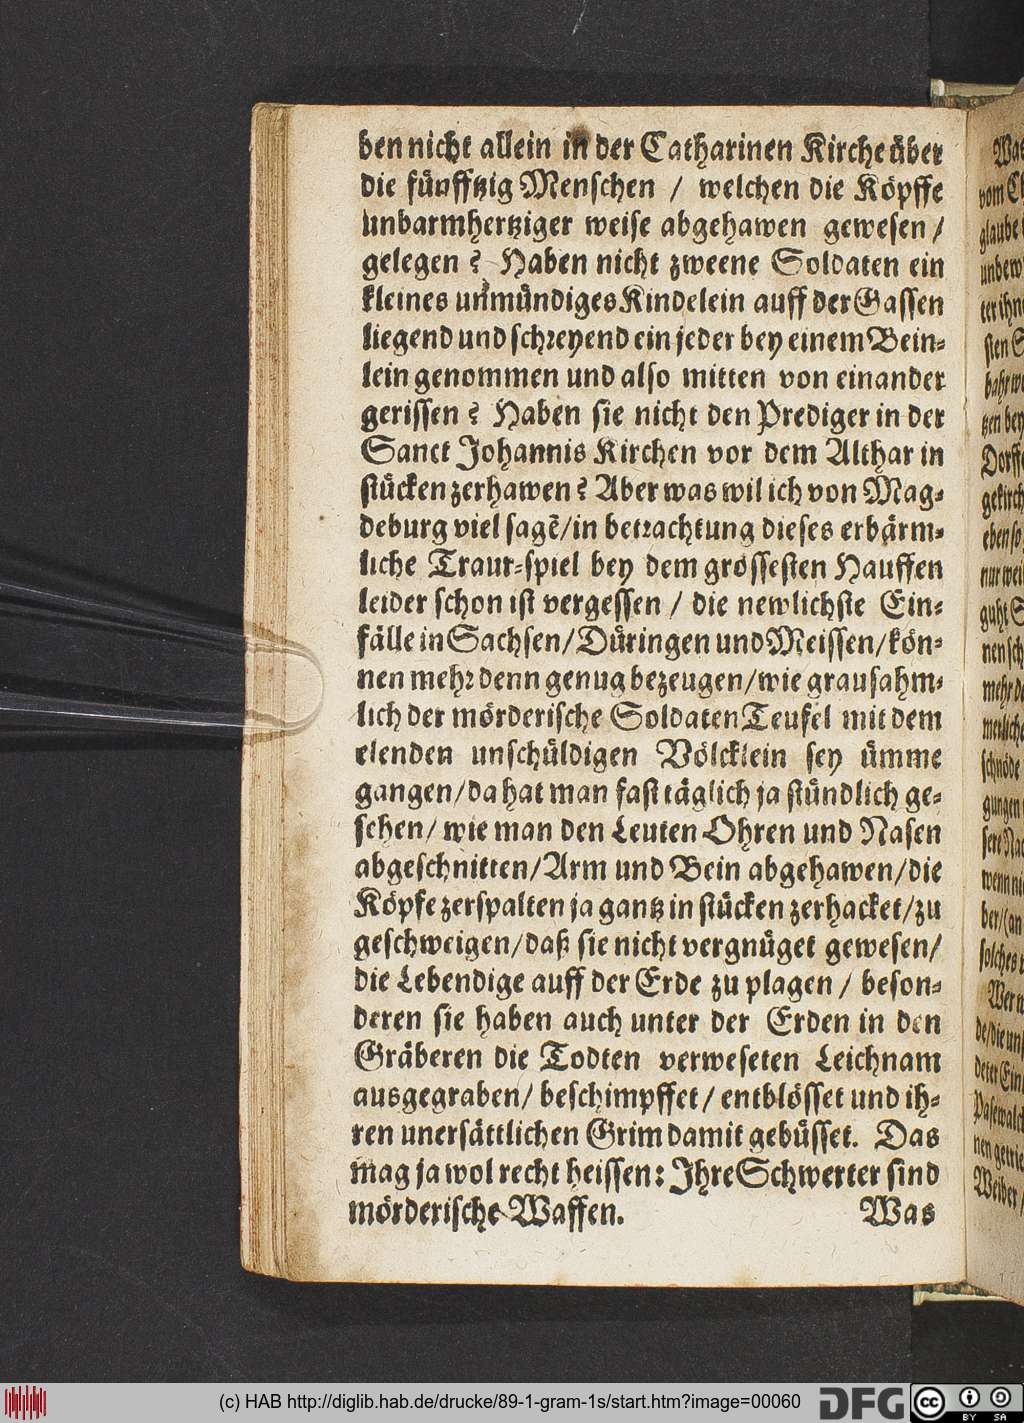 ben nicht allein in der Catharinen Kirche über
die fünfftzig Menschen / welchen die Köpffe
unbarmhertziger weise abgehawen gewesen /
gelegen ? Haben nicht zweene Soldaten ein
kleines unmündiges Kindelein auff der Gassen
liegend und schreyend ein jeder bey einem Bein-
lein genommen und also mitten von einander
gerissen ? Haben sie nicht den Prediger in der
Sanct Johannis Kirchen vor dem Althar in
stücken zerhawen ? Aber was wil ich von Mag-
deburg viel sagẽ / in betrachtung dieses erbärm-
liche Traur-spiel bey dem grössesten Hauffen
leider schon ist vergessen / die newlichste Ein-
fälle in Sachsen / Düringen und Meissen / kön-
nen mehr denn genug bezeugen / wie grausahm-
lich der mörderische Soldaten Teufel mit dem
elenden unschüldigen Völcklein sey ümme
gangen / da hat man fast täglich ja stündlich ge-
sehen / wie man den Leuten Ohren und Nasen
abgeschnitten / Arm und Bein abgehawen / die
Köpfe zerspalten ja gantz in stücken zerhacket / zu
geschweigen / daß sie nicht vergnüget gewesen /
die Lebendige auff der Erde zu plagen / beson-
deren sie haben auch unter der Erden in den
Gräberen die Todten verweseten Leichnam
ausgegraben / beschimpffet / entblösset und ih-
ren unersättlichen Grim damit gebüsset. Das
mag ja wol recht heissen : Ihre Schwerter sind
mörderische Waffen. Was
vom
glaube
gekirch
eben so
nur wei
nen sch
mehr
schnöde
gungen
wenn
ber / (an
solches
Wer
de / die
Pasewalck
Weiber /
(c) HAB http://diglib.hab.de/drucke/89-1-gram-1s/start.htm?image=00060
DFG
cc
BY SA